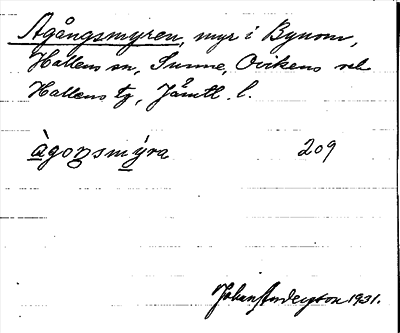 Agångsmyren, myr i Bynom,
Hallens sn, Sunne, Ovikens och
Hallens tg, Jämtl. l.
àgoŋsmýra 209
Johan Anderson 1931.